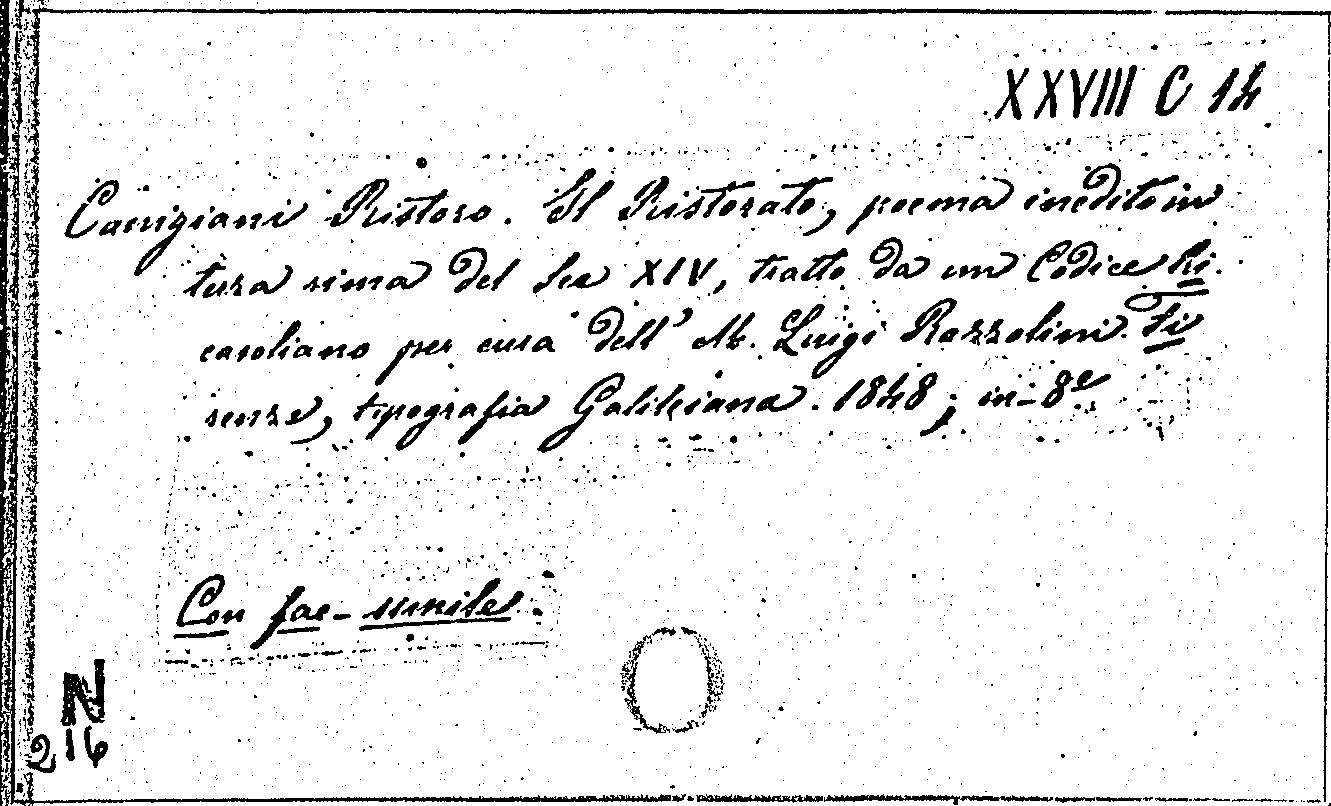 XXVIII C 14
Canigiani Ristoro. Il Ristorato, poema inedito in
terza rima del Sec XIV, tratto da un Codice Ri
casoliano per cura dell' Ab. Luigi Razzolini. Fi
renze, tipografia Galileiana. 1848; in-8°
Con fac-simile.
N
2 16